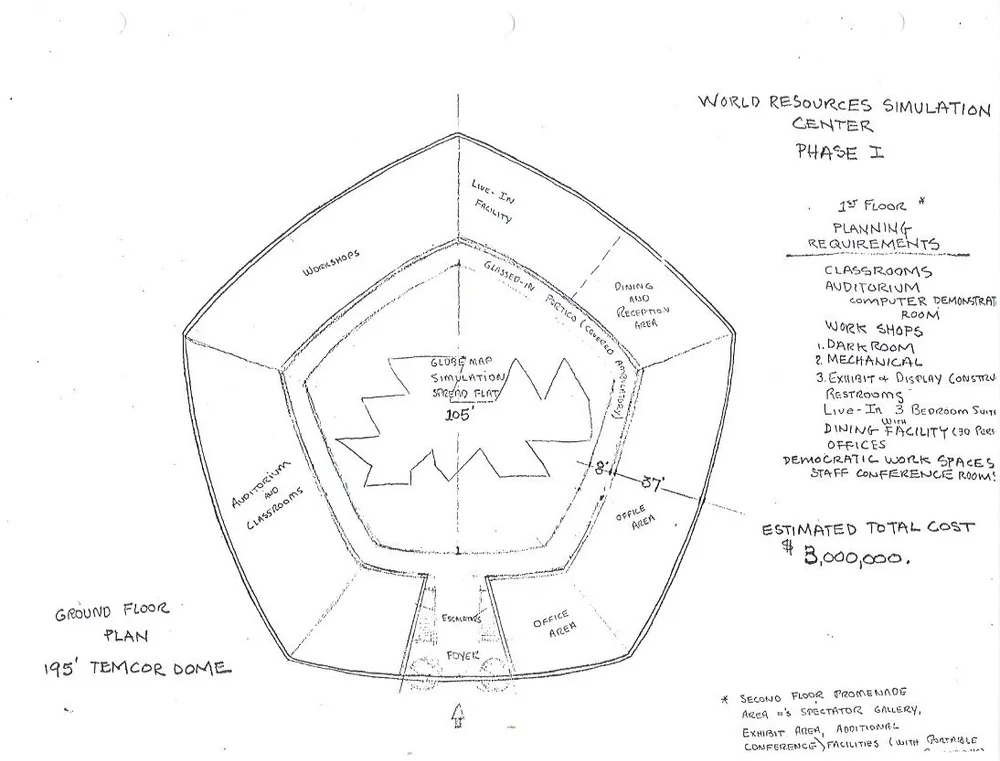 WORLD RESOURCES SIMULATION
CENTER
PHASE I
1ST FLOOR *
PLANNING
REQUIREMENTS
CLASSROOMS
AUDITORIUM
COMPUTER DEMONSTRAT
ROOM
WORK SHOPS
1. DARK ROOM
2 MECHANICAL
3. EXHIBIT & DISPLAY CONSTRU
RESTROOMS
LIVE-IN 3 BEDROOM SUIT
WITH
DINING FACILITY (30 PERS
OFFICES
DEMOCRATIC WORK SPACES
STAFF CONFERENCE ROOMS
ESTIMATED TOTAL COST
$ 3,000,000.
* SECOND FLOOR PROMENADE
AREA ='S SPECTATOR GALLERY,
EXHIBIT AREA, ADDITIONAL
CONFERENCE FACILITIES (WITH PORTABLE
LIVE-IN
FACILITY
WORKSHOPS
GLASSED-IN PORTICO (COVERED AMBULATORY)
DINING
AND
RECEPTION
AREA
GLOBE MAP
SIMULATION
SPREAD FLAT
105'
AUDITORIUM
AND
CLASSROOMS
8'
37'
OFFICE
AREA
ESCALATORS
FOYER
OFFICE
AREA
GROUND FLOOR
PLAN
195' TEMCOR DOME